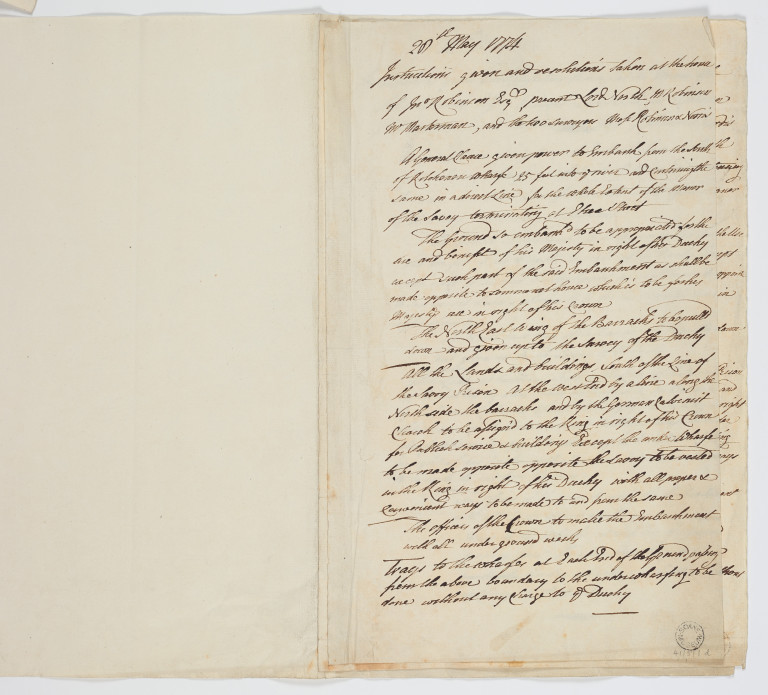 28th May 1774
Instructions given and resolutions taken at the house
of Jno Robinson Esqr, present Lord North Mr Robinson
Mr Masterman, and the two Surveyors Messrs Robinson & Norris
A General Clause given power to Embank from the South
of 25 feet into ye river and continuing the
same in a direct Line for the whole Extent of the Manor
of the Savoy terminating at Strand
The Ground so embank'd to be appropriated for the
use and benefit of his Majesty in right of his Duchy
except such part of the said Embankment as shall be
made opposite to Sommerset house which is to be for his
Majestys use in right of his Crown
The North East Wing of the Barracks to be pulld
down and given up to the Survey of the Duchy
All the Lands and buildings South of the Line of
the Savoy Prison At the west End by a line along the
North side the barracks and by the German Calvinist
Church to be assigned to the King in right of his Crown
for Publick service & buildings Except the Wharfe
to be made opposite opposite the Savoy to be vested
in the King in right of his Duchy with all proper &
Convenient ways to be made to and from the same
The officers of the Crown to make the Embankment
with all under ground works
Ways to the wharfes at Each End of the Ground
from the above boundary to the under wharfing to be
done without any Charge to ye Duchy